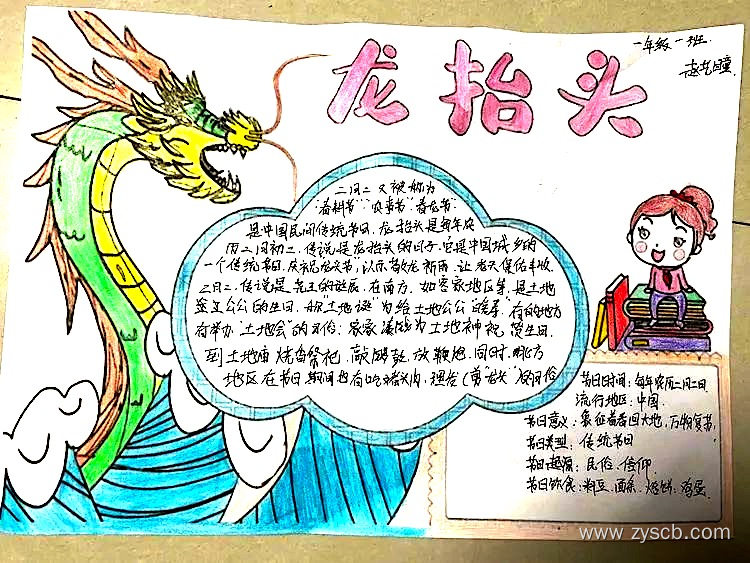 龙抬头
一年级一班
二月二又被称为
"春耕节""农事节""春龙节"
是中国民间传统节日。龙抬头是每年农
历二月初二,传说是龙抬头的日子,它是中国城乡的
一个传统节日,庆祝"龙头节",以示敬龙祈雨,让老天保佑丰收
二月二,传说是尧王的诞辰,在南方,如客家地区等,是土地
公公的生日,称"土地诞"为给土地公公"暖寿",有的地方
有举办"土地会"的习俗:家家凑钱为土地神祝贺生日,
到土地庙烧香祭祀,敲锣鼓,放鞭炮,同时,北方
地区在节日期间也有吃猪头肉,理发(剪"龙头")风俗
节日时间:每年农历二月二日
流行地区:中国.
节日意义:象征着春回大地,万物复苏,
节日类型:传统节日
节日起源:民俗、信仰.
节日饮食:料豆、面条、烧饼、鸡蛋.
www.zyscb.com